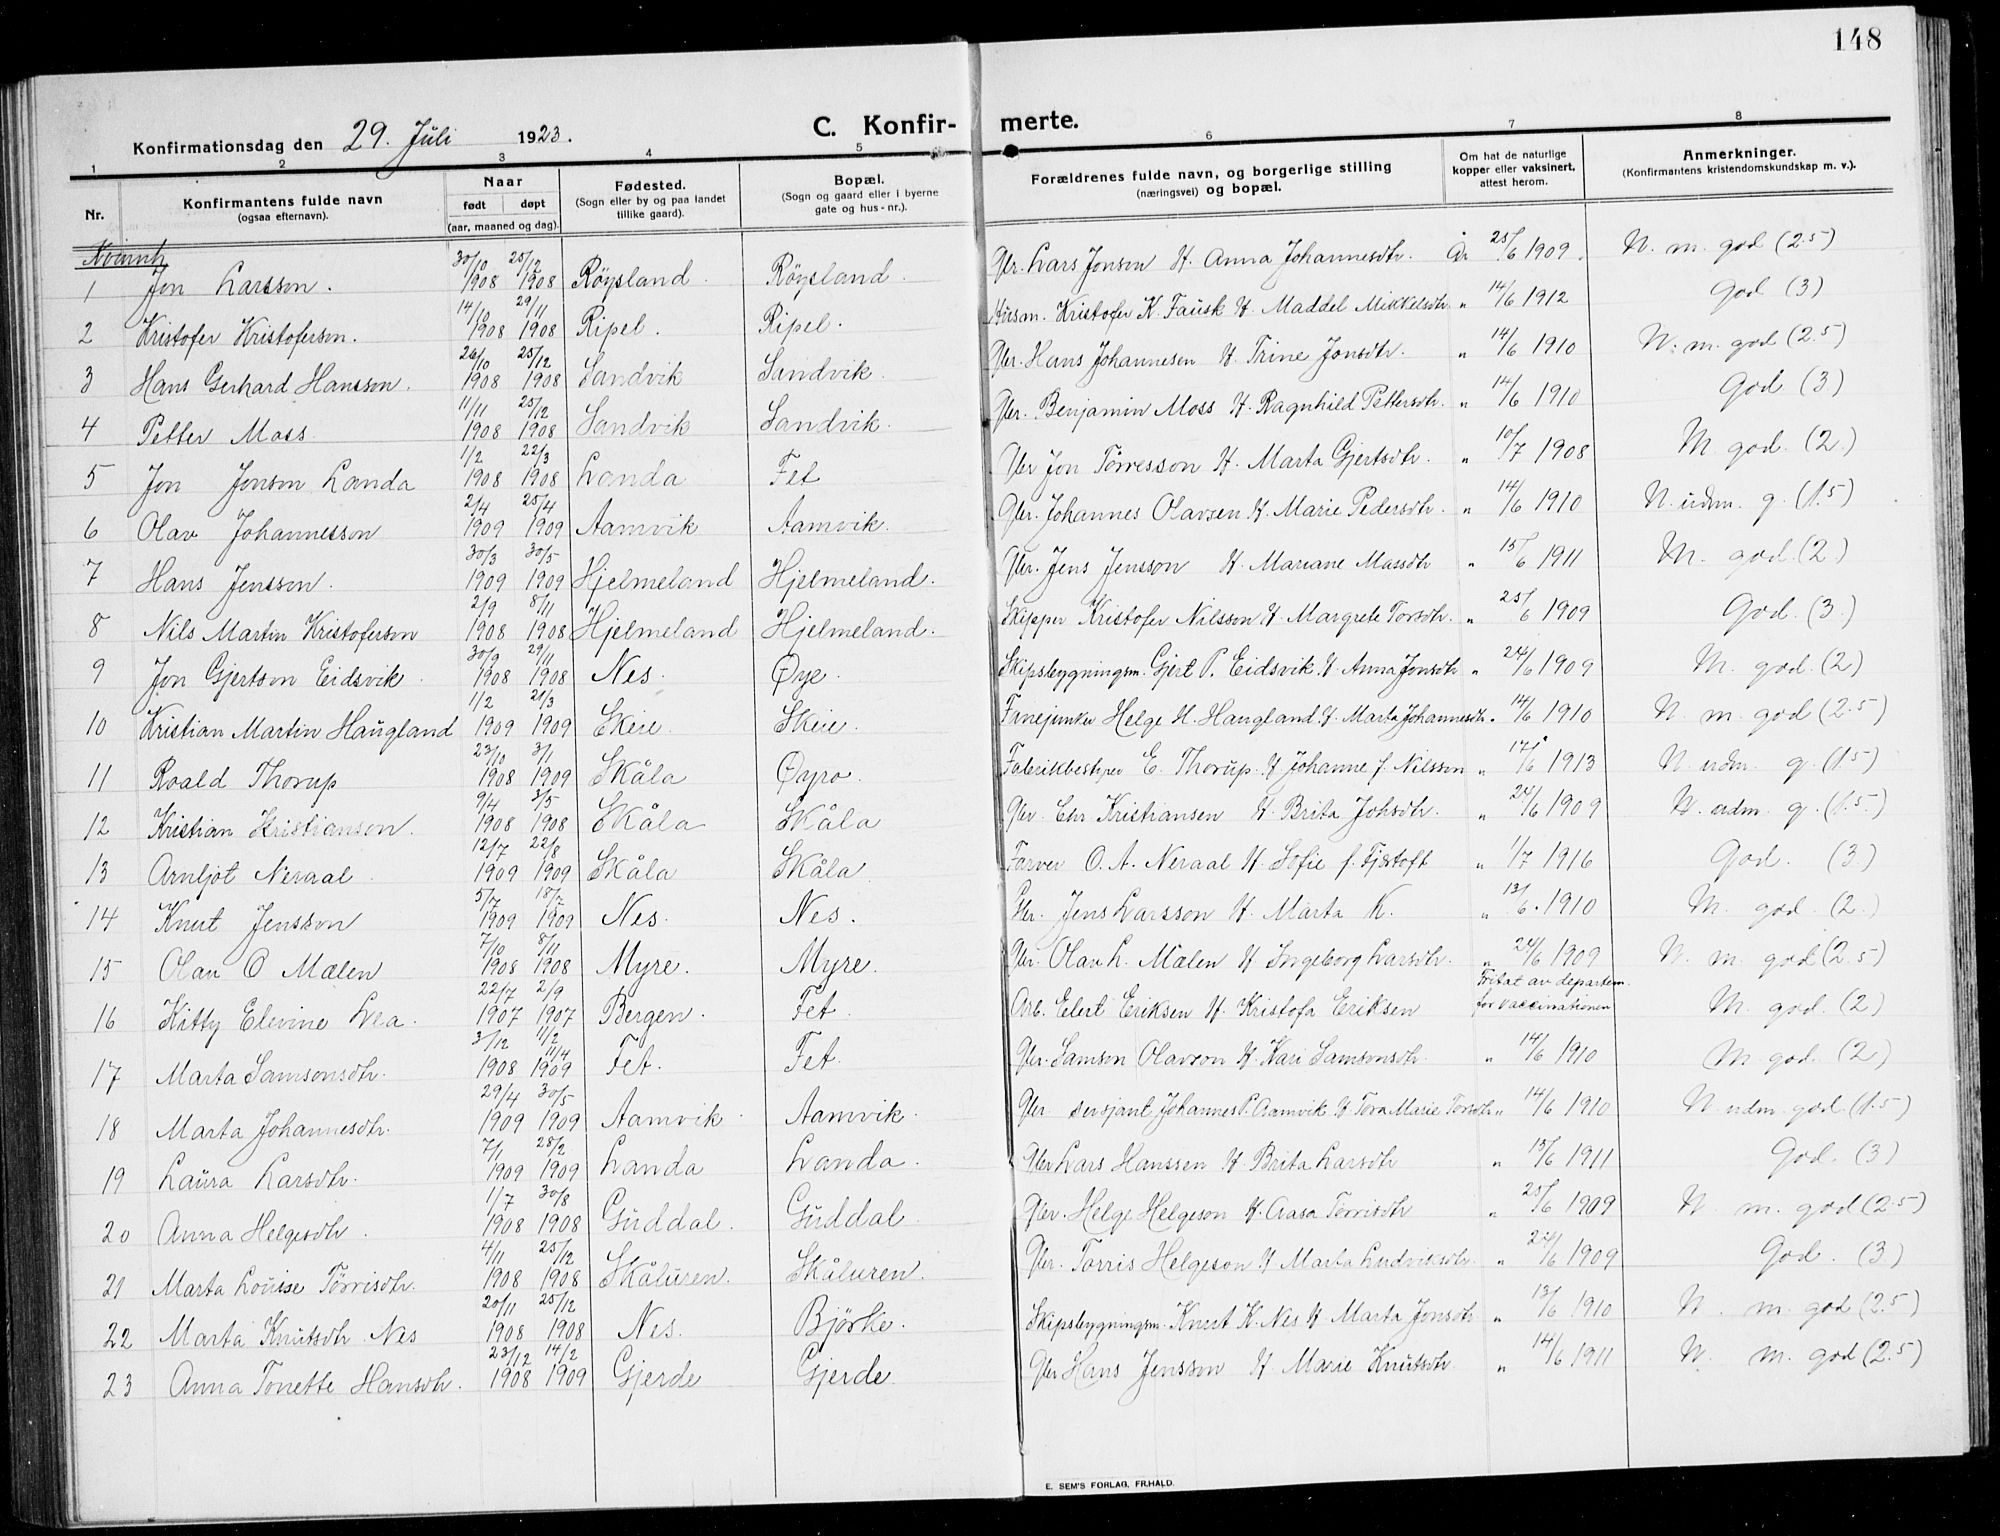 148
Konfirmationsdag den 29. Juli 1923. C. Konfir- merte.
1 2 3 4 5 6 7 8
Nr. Konfirmantens fulde navn (ogsaa efternavn). Naar født døpt (aar, maaned og dag). Fødested. (Sogn eller by og paa landet tillike gaard). Bopæl. (Sogn og gaard eller i byerne gate og hus-nr.). Forældrenes fulde navn, og borgerlige stilling (næringsvei) og bopæl. Om hat de naturlige kopper eller vaksinert, attest herom. Anmerkninger. (Konfirmantens kristendomskundskap m. v.).
1 Jon Larsson. 30/10 1908 25/12 1908 Röysland. Röysland. Gbr. Lars Jonson H. Anna Johannesdtr. År 25/6 1909. N. m. god (2.5)
2 Kristofer Kristoferson. 14/10 1908 29/11 1908 Ripel. Ripel. Kristofer K. Fausk H. Maddel Mikkelsdtr. " 14/6 1912 God (3)
3 Hans Gerhard Hansson. 26/10 1908 25/12 1908 Sandvik Sandvik. Gbr. Hans Johannesen H. Trine Jonsdtr. " 14/6 1910 N. m. god (2.5)
4 Petter Moss. 11/11 1908 25/12 1908 Sandvik Sandvik. Gbr. Benjamin Moss H. Ragnhild Pettersdtr. " 14/6 1910 God (3)
5 Jon Jonson Landa 1/2 1908 22/3 1908 Landa Fet Gbr Jon Törresson H. Marta Gjertsdtr. " 10/7 1908 M. god. (2.)
6 Olav Johannesson 2/4 1909 25/4 1909 Aamvik Aamvik. Gbr. Johannes Olavsen H. Marie Pedersdtr. " 14/6 1910 N. udm. g. (1.5)
7 Hans Jensson. 30/3 1909 30/5 1909 Hjelmeland Hjelmeland. Gbr. Jens Jensson H. Mariane Massdtr " 15/6 1911 M. god. (2)
8 Nils Martin Kristoferson 2/9 1908 8/11 1908 Hjelmeland Hjelmeland. Skipper Kristofer Nilsson H. Margrete Torsdtr. " 25/6 1909 God. (3.)
9 Jon Gjertson Eidsvik. 30/9 1908 29/11 1908 Nes. Øye. Skipsbygningsm. Gjert P. Eidsvik. H. Anna Jonsdtr " 24/6 1909 M. god. (2)
10 Kristian Martin Haugland 1/2 1909 21/3 1909 Skeie. Skeie. Helge H. Haugland. H. Marta Johannesdtr. " 14/6 1910 N. m. god (2.5)
11 Roald Thorup 23/10 1908 3/1 1909 Skåla Øyro. Fabrikbestyrer E. Thorup. H Johanne f. Nilsson " 17/6 1913 N. udm. g. (1.5)
12 Kristian Kristianson. 9/4 1908 3/5 1908 Skåla Skåla Gbr. Chr Kristiansen H. Brita Johsdtr. " 24/6 1909 N. udm. g. (1.5.)
13 Arnljot Neraal. 12/7 1909 22/8 1909 Skåla Skåla Farver O. A. Neraal H. Sofie f. Fjærtoft " 1/7 1916 God. (3.)
14 Knut Jensson 5/7 1909 18/7 1909 Nes. Nes. Jens Larsson H. Marta K. " 13/6. 1910 M. god. (2.)
15 Olav O Mælen 7/10 1908 8/11 1908 Myre. Myre. Gbr. Olav L. Mælen H Ingeborg Larsdtr. " 24/6 1909 N. m. god (2.5)
16 Kitty Elevine Lea. 22/7 1907 2/9 1907 Bergen. Fet. Arb. Elert Eriksen H. Kristofa Eriksen Fritat av departem. for vaccinationen M. god. (2)
17 Marta Samsonsdtr. 3/12 1908 11/2 11/4 1909 Fet. Fet. Gbr. Samson Olavson H. Kari Samsonsdtr. " 14/6 1910 M god. (2)
18 Marta Johannesdtr. 29/4 1909 30/5 1909 Aamvik. Aamvik. Gbr sersjant Johannes P. Aamvik H Tora Marie Torsdtr " 14/6 1910 N udm. god (1.5)
19 Laura Larsdtr. 7/1 1909 28/2 1909 Landa Landa. Gbr Lars Hanssen H. Brita Larsdtr " 15/6 1911 God. (3)
20 Anna Helgesdtr. 1/7 1908 30/8 1908 Guddal. Guddal. Gbr. Helge Helgeson H. Aasa Törrisdtr " 25/6 1909 N. m. god (2.5)
21 Marta Louise Törrisdtr. 4/11 1908 25/12 1908 Skåluren. Skåluren. Gbr. Torris Helgeson H Marta Ludviksdtr. " 24/6 1909 God. (3)
22 Marta Knutsdtr. Nes 20/11 1908 25/12 1908 Nes. Björke. Skipsbygningsm. Knut K. Nes H Marta Jonsdtr " 13/6 1910 N. m. god (2.5)
23 Anna Tonette Hansdtr. 23/12 1908 14/2 1909 Gjerde Gjerde. Gbr Hans Jensson H Marie Knutsdtr " 14/6 1911 N. m. god (2.5)
E. SEM'S FORLAG, FR.HALD.